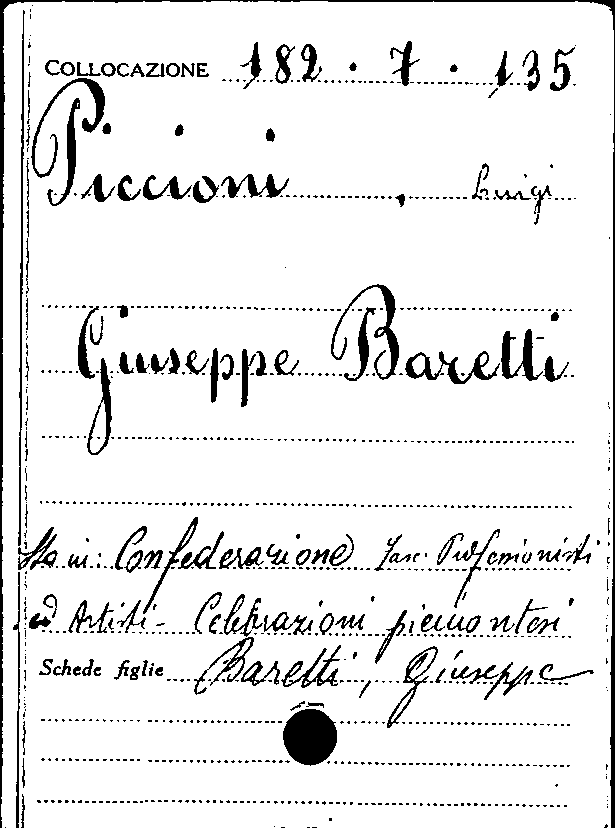 COLLOCAZIONE 182 . 7 . 135
Piccioni , Luigi
Giuseppe Baretti
Sta in: Confederazione fasc. Professionisti
ed Artisti - Celebrazioni piemontesi
Schede figlie Baretti, Giuseppe